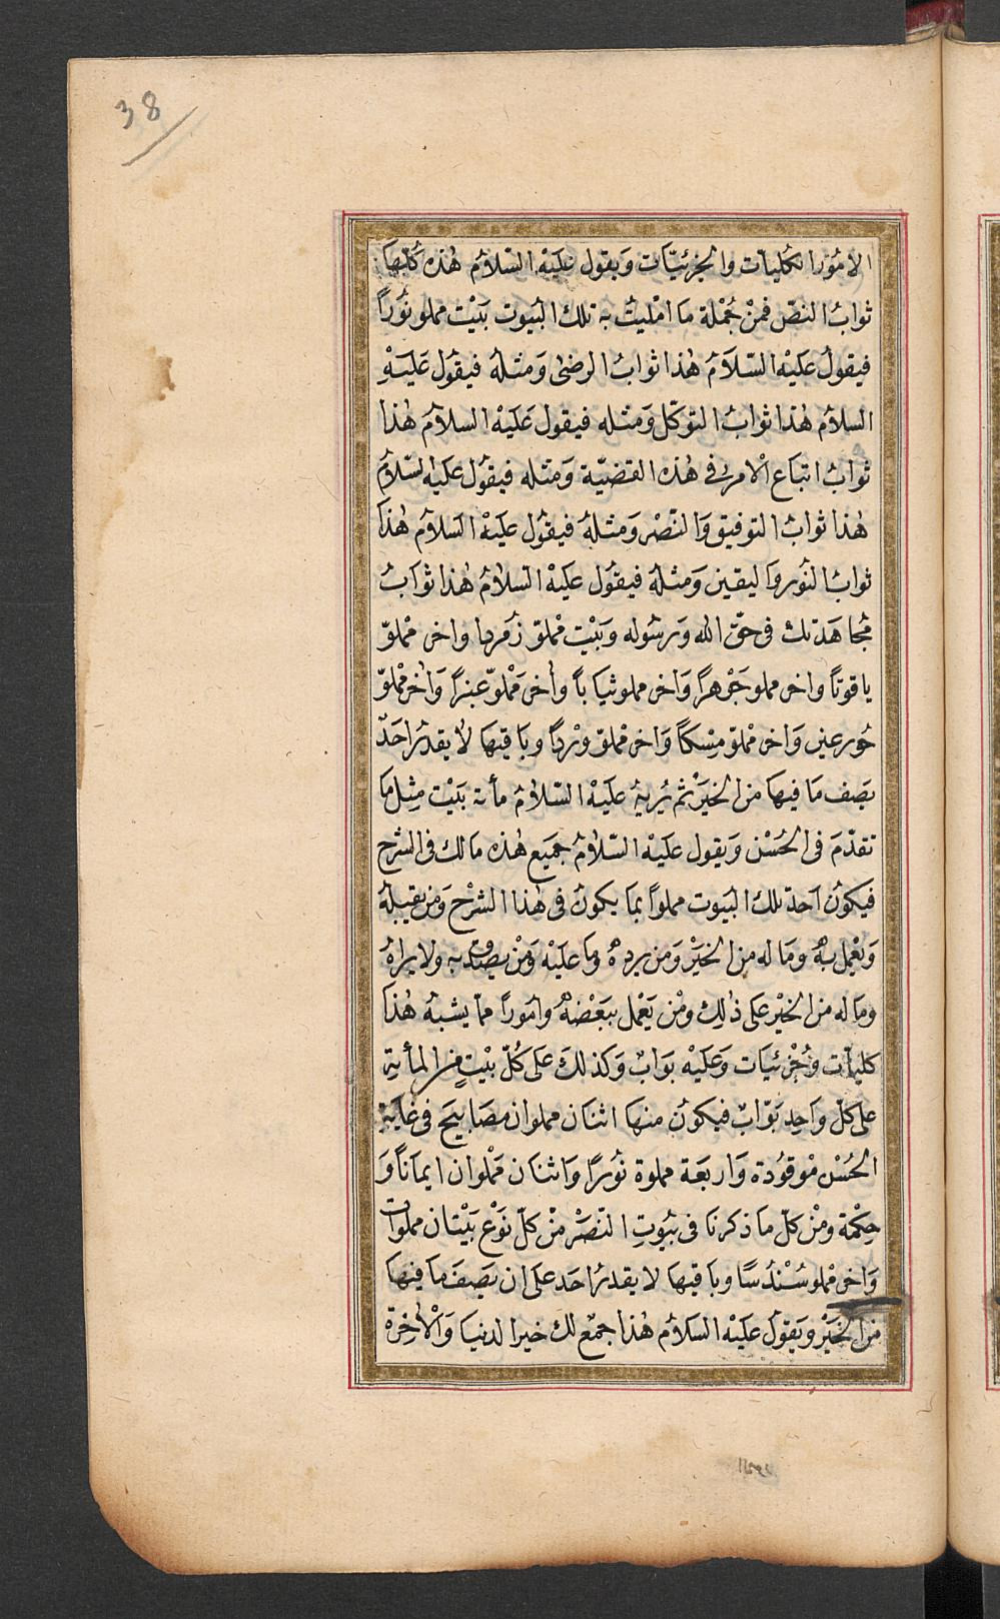 38
الامُور الكليات والجزئيّات وَيقول عليْه السّلامُ هٰذه كلّها
ثوابُ النصّ فمنْ جُمْلة مَا امْليتْ به تلك البُيوت بَيْت مملو نُوراً
فيقولُ عليْه السّلاَمُ هٰذا ثوابُ الرضىٰ وَمثلهُ فيقُول عَليَهْ
السلامُ هٰذا ثوابُ التوكّل وَمثله فيقول عَليَهْ السلامُ هٰذا
ثوابُ اتباع الْامر فى هٰذه القضيّة وَمثله فيقُول عليه السّلامُ
هٰذا ثوابُ التوفيق وَالنّصْر وَمثلهُ فيقُول عليَهْ السّلامُ هٰذا
ثوابُ النُور وَاليقين وَمثلهُ فيقُول عليَهْ السلامُ هٰذا ثوابُ
مُجاهَدتك فى حقّ الله وَرسُوله وَبَيْت مْملوّ زمُردا واخر مْملوّ
ياقوتاً واخر مملو جَوْهراً وَاخر مملو ثيَاباً وأخر مَمْلوّ عنبراً وَاخر مْملوّ
حُور عين وَاخر مْملوّ مِسْكاً وَاخر مْملوّ ورْداً وبَاقيهَا لا يقدرُ احَدٌ
يَصِف مَا فيهَا من الخيَرْ ثم يُريهُ عليَهْ السّلامُ مأتة بَيْت مثِل مَا
تقدّمَ فى الحُسْن وَيقول عليَهْ السّلامُ جميَع هٰذه مالك فى الشرح
فيكوُن احدَ تلك البُيوت مملواً بمَا يكونُ فى هٰذا الشرْح وَمن يقبلهُ
وَيعْمل بهُ ومَا له من الخيَرْ وَمن يردهُ ومَا عليَهْ وَمْن يصدّق به ولا يراهُ
ومَا له من الخيْر على ذٰلِك ومْن يَعْمل ببَعْضهُ وامُوراً ممّا يشبهُ هٰذا
كليات وجُزْئيَات وَعَليَهْ بَوابٌ وَكذلكَ عَلى كُلّ بيْتٍ من المأية
على كلّ واَحِد بَوّابٌ فيكوُن منهَا اثنَان مملوان مصَابيَح فى غايَة
الحُسْن مْوقوُدة وَاربعَة مملوة نوُراً وَاثنَان مَمْلوان ايمَاناً وَ
حِكْمة ومْن كلّ مَا ذكرنَا فى بيُوتِ النّصَرْ منْ كلّ نَوْع بَيْتان مملوات
وَاخر مْملو سُنْدُسًا وبَاقيها لا يقدرُ احَد على ان يَصِفَ مَا فيهَا
من الخَيْر وَيقول عليَهْ السَلامُ هٰذا جمع لك خير الدنيَا وَالْاخِرة